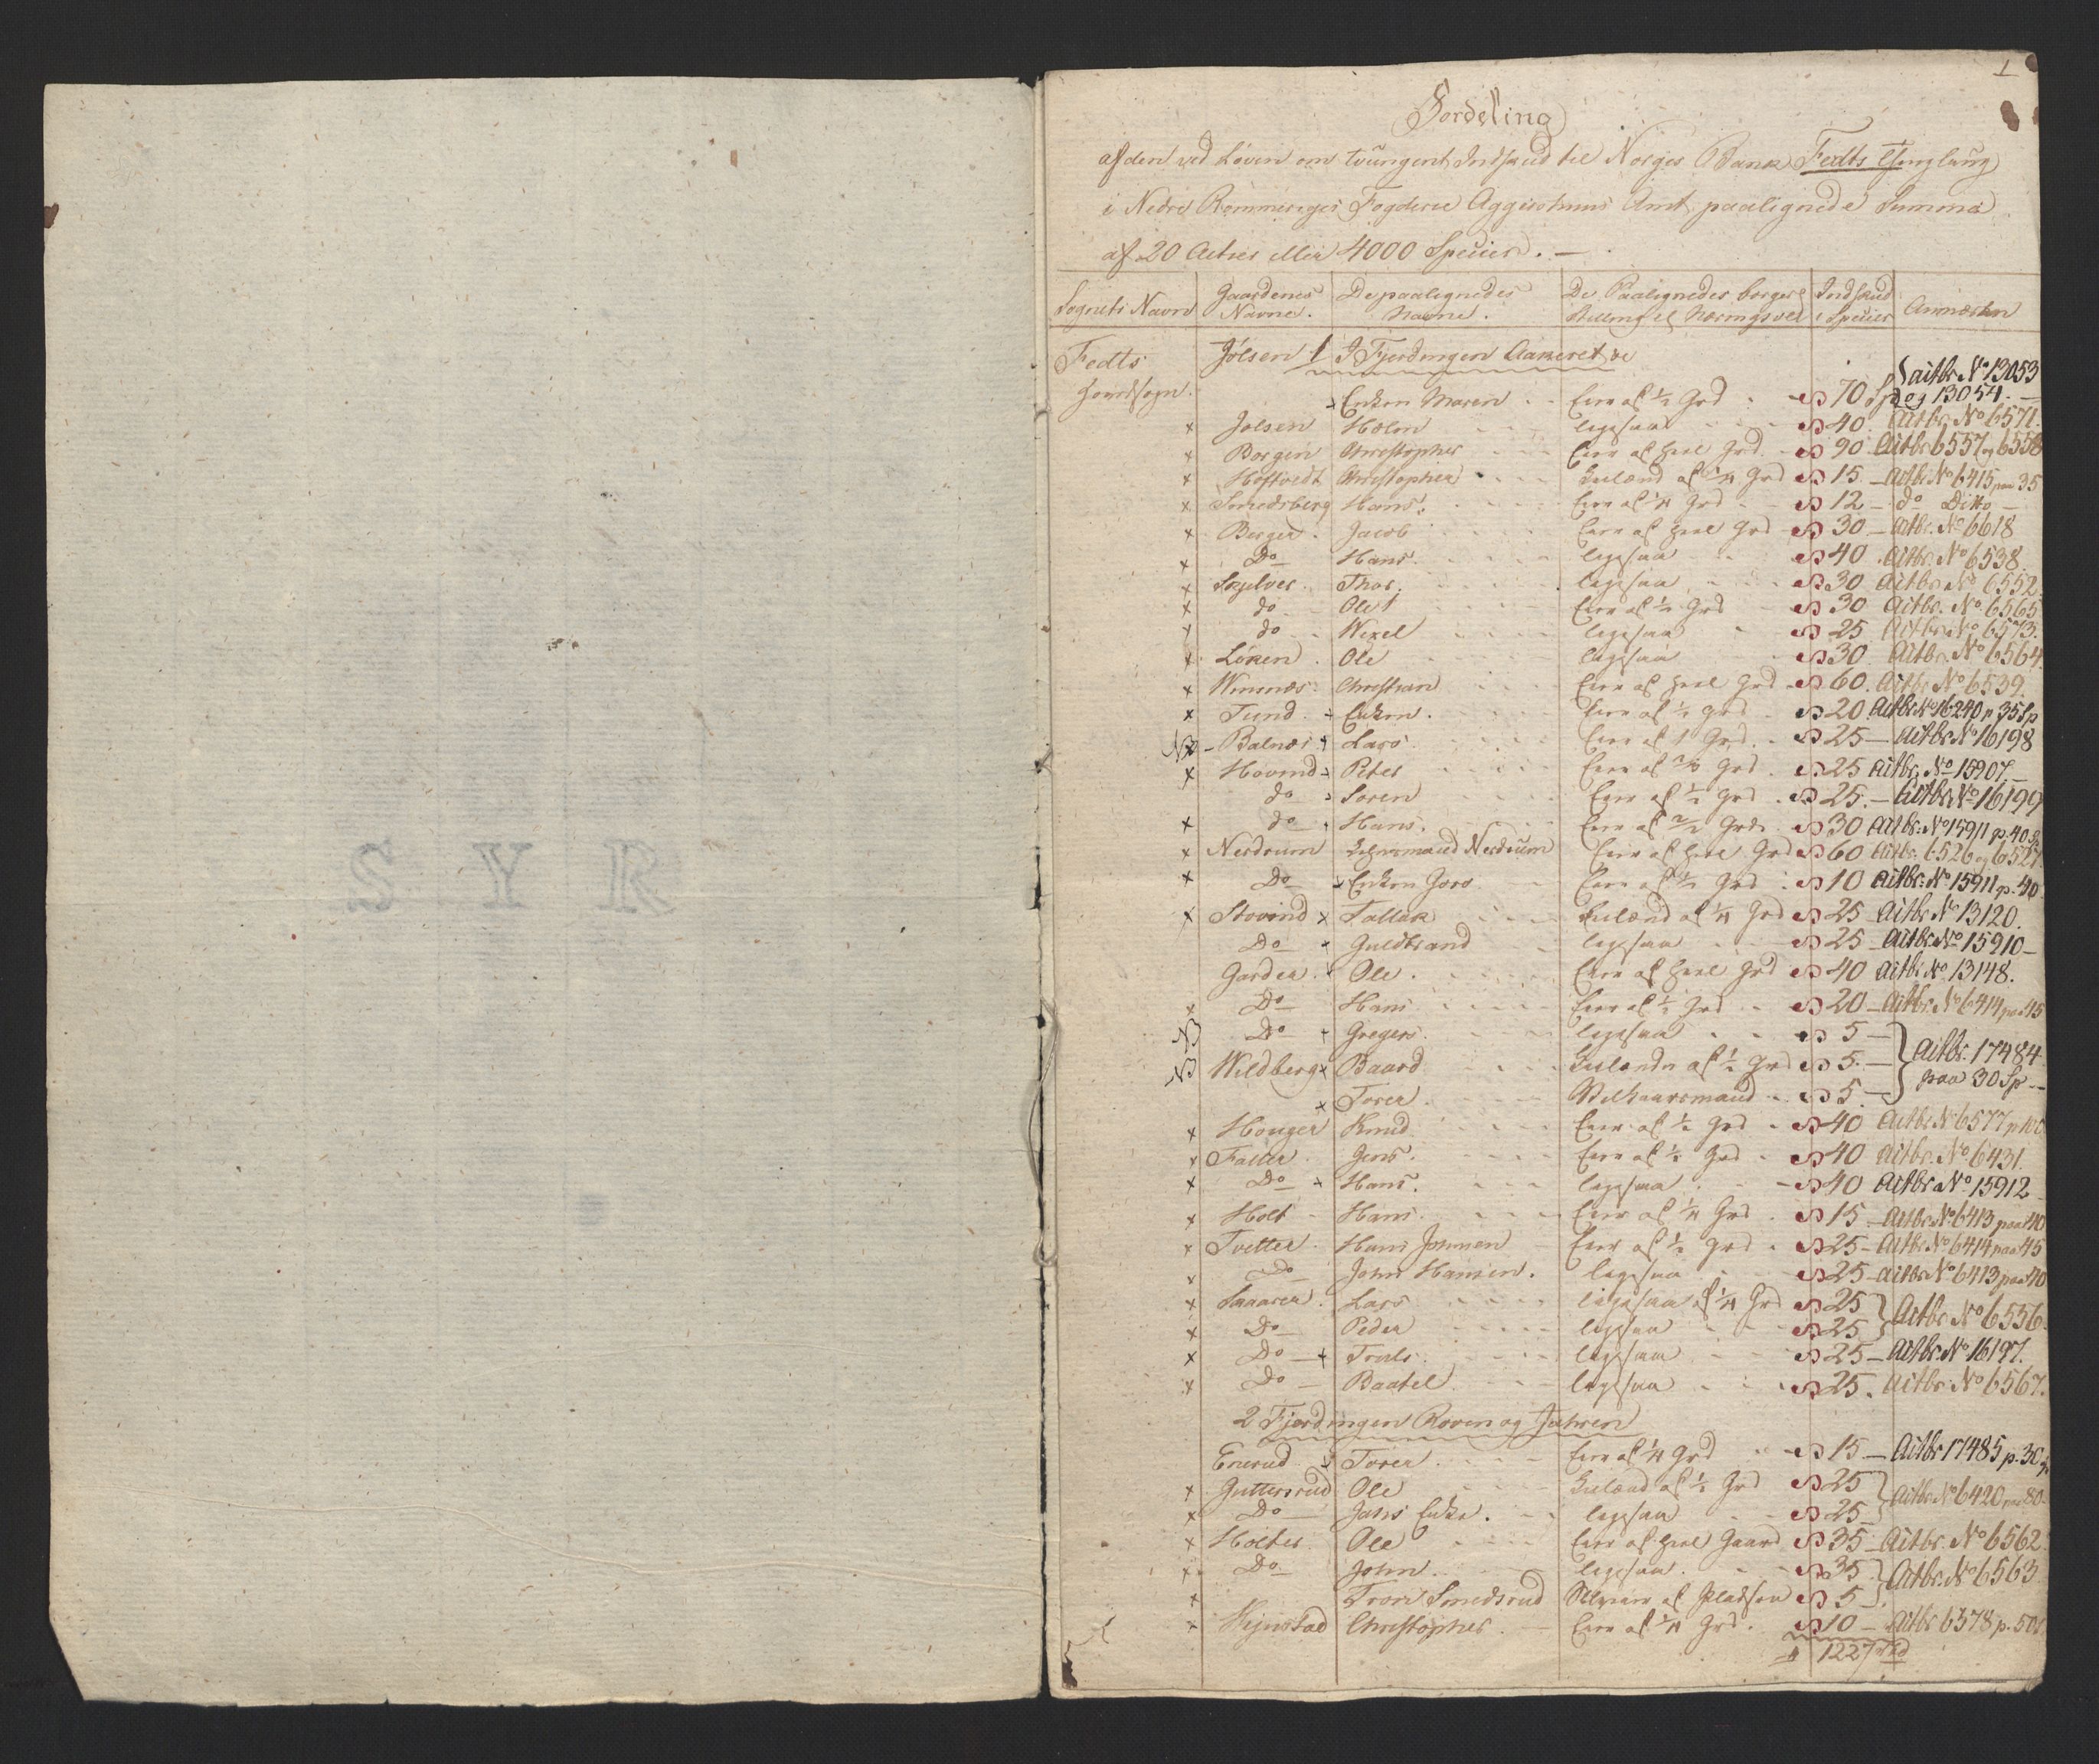 1
Fordeling
af den ved Loven om tvungent Indskud til Norges Bank Fedts Thinglaug
i Nedre Rommeriges Fogderie Aggershuus Amt paalignede Summa
af 20 Actier eller 4000 Specier. —
Sognets Navn Gaardenes Navne. De paalignedes Navne. De Paalignedes borgerl Stilling el Næringsvei Indskud i Specier Anmærkn
Fedts Jølsen 1 I Fjerdingen Aakeret
hovedsogn. Enken Maren Eier af ½ Grd 70 Sp Actbr. No 13053 og 13054. —
x Jølsen Holm ligesaa 40. Actbr. No 6571.
x Borgen Christopher Eier af heel Grd 90 Actbr 6557 og 6558
x Høftvedt Christopher af ¼ Grd 15. — Actbr No 6415 paa 35
x Smedsberg Hans. Eier af ¼ Grd 12 — do Ditto —
x Berger. Jacob Eier af heel Grd 30 — Actbr. No 6618
x Do Hans. ligesaa 40. Actbr. No 6538.
x Skjelver Thor. ligesaa 30 Actbr. No 6552.
x do Ole 1 Eier af ½ Grd 30 Actbr. No 6565
x do Wexel ligesaa 25 Actbr. No 6573.
x Løken. Ole ligesaa 30 Actbr. No 6564
x Wennæs. Christian Eier af heel Grd 60. Actbr No 6539.
x Tund. Enken. Eier af ½ Grd 20 Actbr. No 16240 p 35 Sp
NB — Balnæs Lars Eier af 1 Grd. 25 — Actbr No 16198
x Hovind Peter Eier af Grd. 25 Actbr. No 15907. —
do Søren Eier af ½ Grd 25. — Actbr. No 16199
x do Hans. Eier af Grd 30 Actbr. No 15911 p. 40 Sp
x Nerdrum Lehnsmand Nerdrum Eier af heel Grd 60 Actbr. 6526 og 6527.
x Do Enken Goro Eier af ½ Grd 10 Actbr. No 15911 p. 40
x Stovind x Tallak af ¼ Grd 25 Actbr No 13120.
Do Guldbrand ligesaa 25 — Actbr. No 15910 —
Garder. Ole. Eier af heel Grd 40 Actbr No 13148.
x Do Hans Eier af ½ Grd 20 — Actbr. No 6414 paa 45
NB Do Gregers. ligesaa 5 —
NB Wildberg x Baard af ½ Grd 5. — Actbr. 17484
x Torer Vilkaarsmand 5. — paa 30 Sp —
x Houger Knud Eier af ½ Grd 40 Actbr. No 6577 p 100
x Faller Jens. Eier af ½ Grd 40 Actbr. No 6431.
x Do Hans. ligesaa 40 Actbr No 15912
x Holt Hans. Eier af ¼ Grd 15 — Actbr. No 6413 paa 40
x Tvetter. Hans Johnsen Eier af ½ Grd 25 — Actbr No 6414 paa 45
x Do John Hansen. ligesaa 25 — Actbr No 6413 paa 40
x Smaarer. Lars ligesaa af ¼ Grd 25
x Do Peder ligesaa 25 Actbr. No 6536.
x Do Truls ligesaa 25 — Actbr. No 16197.
x Do Baatel ligesaa 25. Actbr No 6567.
2 Fjerdingen Roven og Jahren
Enerud x Torer. Eier af ¼ Grd 15 — Actbr 17485 p. 30 Sp
x Guttersrud Ole af ½ Grd 25
x Do Jahrs Enke. ligesaa 25 Actbr No 6420 paa 80
x Holter Ole Eier af heel Gaard 35 — Actbr. No 6562.
x Do John. ligesaa. 35 Actbr. No 6563
x Tron Smedsrud af Pladsen 5
x Hejnstad Christopher. Eier af ¼ Grd. 10 — Actbr 6578 p. 50
1227